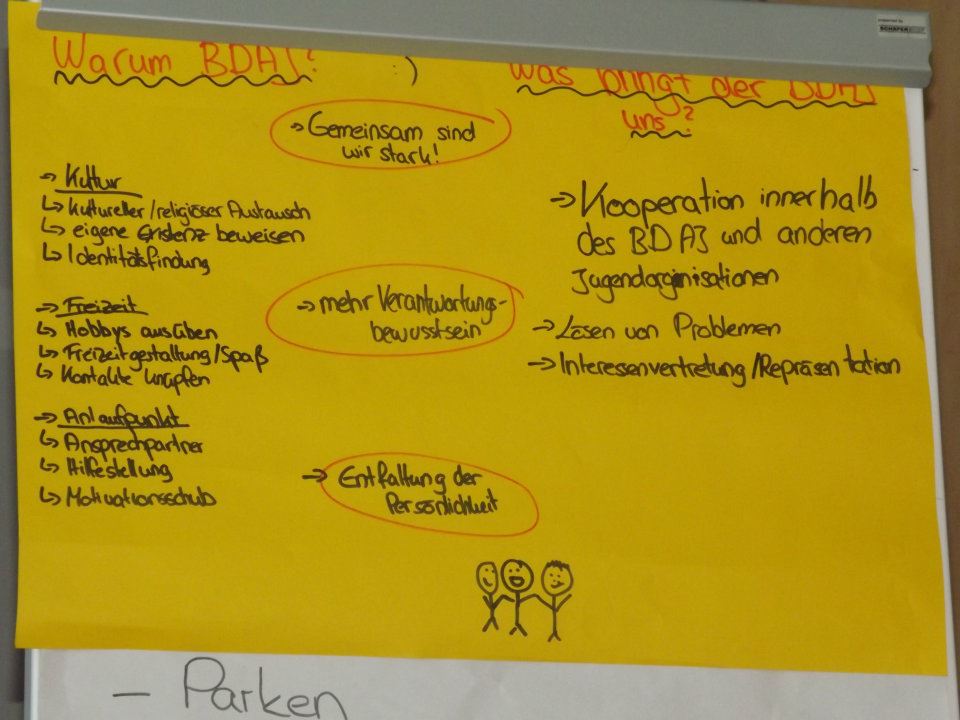 presented by
SCHÄFER
Warum BDAJ?
:)
Was bringt der BDAJ
uns?
→ Gemeinsam sind
wir stark!
→ Kultur
↳ kultureller/religiöser Austausch
↳ eigene Existenz beweisen
↳ Identitätsfindung
→ Freizeit
↳ Hobbys ausüben
↳ Freizeitgestaltung/Spaß
↳ Kontakte knüpfen
→ Anlaufpunkt
↳ Ansprechpartner
↳ Hilfestellung
↳ Motivationsschub
→ mehr Verantwortungs-
bewusstsein
→ Entfaltung der
Persönlichkeit
→ Kooperation innerhalb
des BDAJ und anderen
Jugendorganisationen
→ Lösen von Problemen
→ Interesenvertretung/Repräsentation
– Parken